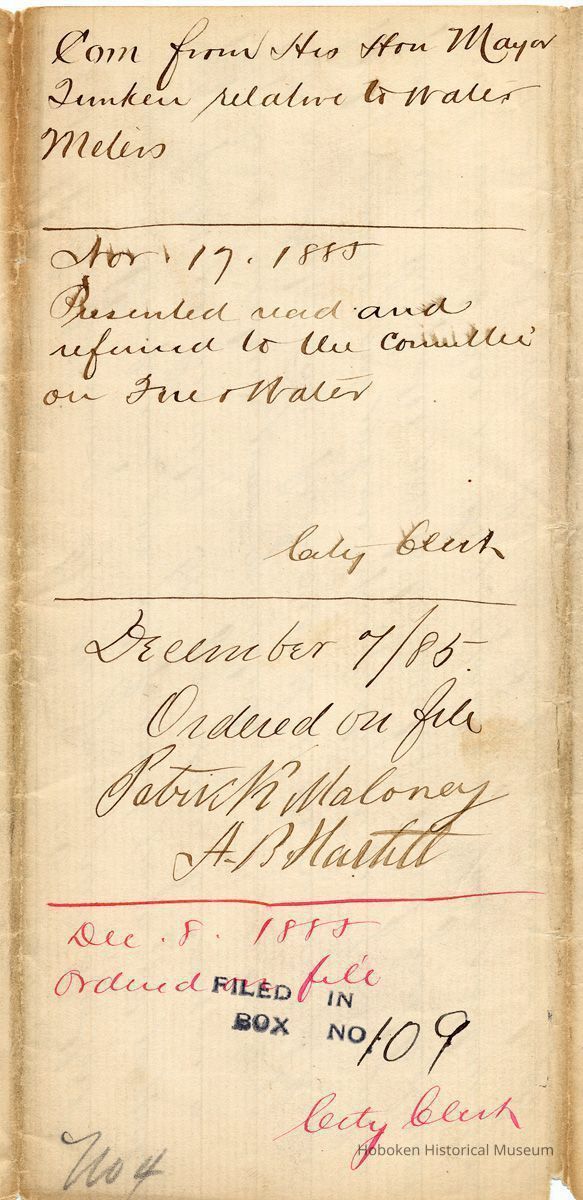 Com from His Hon Mayor
Timken relative to Water
Meters
Nov 17. 1885
Presented read and
referred to the Committee
on Fire & Water
City Clerk
December 7/85.
Ordered on file
Patrick Maloney
A. B.
Dec. 8. 1885
Ordered on file
FILED IN
BOX NO 109
City Clerk
Hoboken Historical Museum
No 4